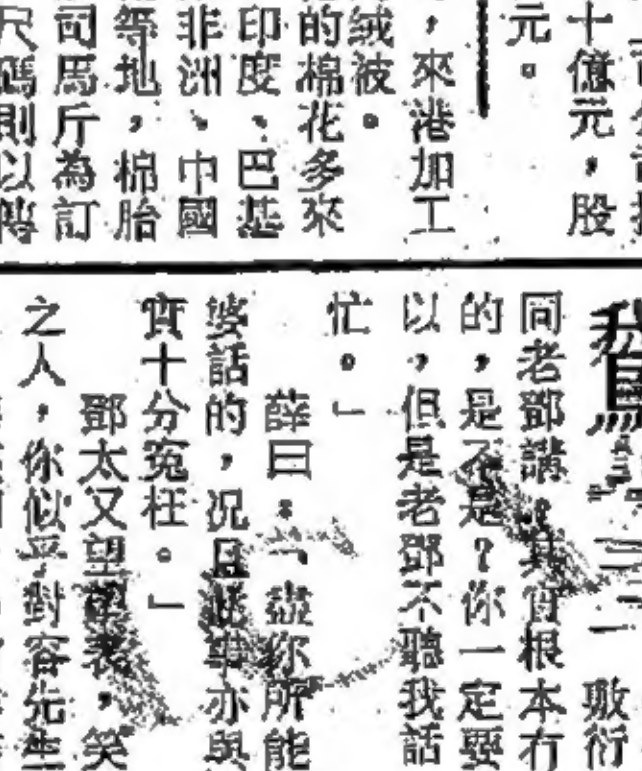 十億元，股
元。
，來港加工
絨被。
的棉花多來
印度、巴基
非洲、中國
等地，棉胎
司馬斤為訂
尺碼則以
敬衍
同老鄧講，其實根本冇
的，是不是？你一定要
以，但是老鄧不聽我話
忙。」
薛曰：「盡你所能
婆話的，况且此舉亦與
實十分冤枉。」
鄧太又望望表，笑
之人，你似乎對容先生